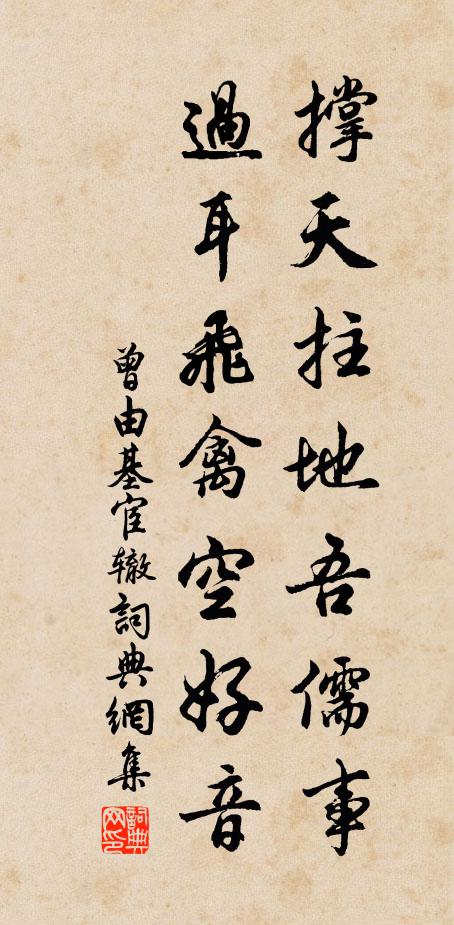 撐天拄地吾儒事
過耳飛禽空好音
曾由基宦辙詞典網集
詞典网印